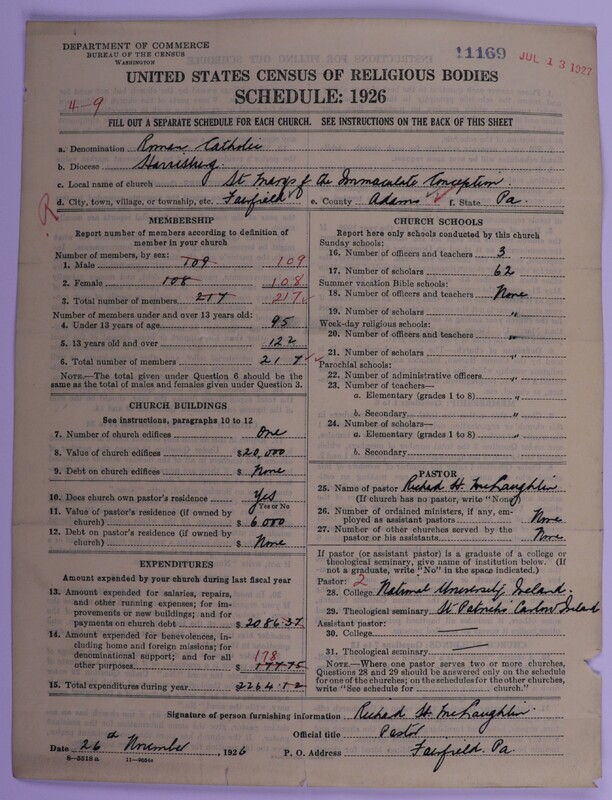 DEPARTMENT OF COMMERCE
BUREAU OF THE CENSUS
WASHINGTON
11169
JUL 13 1927
UNITED STATES CENSUS OF RELIGIOUS BODIES
SCHEDULE: 1926
4-9
FILL OUT A SEPARATE SCHEDULE FOR EACH CHURCH. SEE INSTRUCTIONS ON THE BACK OF THIS SHEET
a. Denomination Roman Catholic
b. Diocese Harrisburg.
c. Local name of church St Marys of the Immaculate Conception.
R
d. City, town, village, or township, etc. Fairfield e. County Adams f. State Pa.
MEMBERSHIP
Report number of members according to definition of
member in your church
Number of members, by sex:
1. Male 109 109
2. Female 108 108
3. Total number of members 217 217
Number of members under and over 13 years old:
4. Under 13 years of age 95
5. 13 years old and over 122
6. Total number of members 217
NOTE.—The total given under Question 6 should be
the same as the total of males and females given under Question 3.
CHURCH BUILDINGS
See instructions, paragraphs 10 to 12
7. Number of church edifices One
8. Value of church edifices $20,000
9. Debt on church edifices $ None
10. Does church own pastor's residence Yes
Yes or No
11. Value of pastor's residence (if owned by
church) $ 6000
12. Debt on pastor's residence (if owned by
church) $ None
EXPENDITURES
Amount expended by your church during last fiscal year
13. Amount expended for salaries, repairs,
and other running expenses; for im-
provements or new buildings; and for
payments on church debt $ 2086.37
14. Amount expended for benevolences, in-
cluding home and foreign missions; for
denominational support; and for all
other purposes 178
$ 177.75
15. Total expenditures during year $2264.12
CHURCH SCHOOLS
Report here only schools conducted by this church
Sunday schools:
16. Number of officers and teachers 3
17. Number of scholars 62
Summer vacation Bible schools:
18. Number of officers and teachers None
19. Number of scholars "
Week-day religious schools:
20. Number of officers and teachers "
21. Number of scholars "
Parochial schools:
22. Number of administrative officers "
23. Number of teachers—
a. Elementary (grades 1 to 8) "
b. Secondary "
24. Number of scholars—
a. Elementary (grades 1 to 8) "
b. Secondary "
PASTOR
25. Name of pastor Richard H. McLaughlin
(If church has no pastor, write "None")
26. Number of ordained ministers, if any, em-
ployed as assistant pastors None
27. Number of other churches served by the
pastor or his assistants None
If pastor (or assistant pastor) is a graduate of a college or
theological seminary, give name of institution below. (If
not a graduate, write "No" in the space indicated.)
Pastor: 2
28. College National University, Ireland.
29. Theological seminary St Patricks Carlow Ireland
Assistant pastor:
30. College —
31. Theological seminary —
NOTE.—Where one pastor serves two or more churches,
Questions 28 and 29 should be answered only on the schedule
for one of the churches; on the schedules for the other churches,
write "See schedule for church."
Signature of person furnishing information Richard H. McLaughlin.
Official title Pastor
Date 26th November, 1926 P. O. Address Fairfield. Pa.
8—3318 a 11—4664